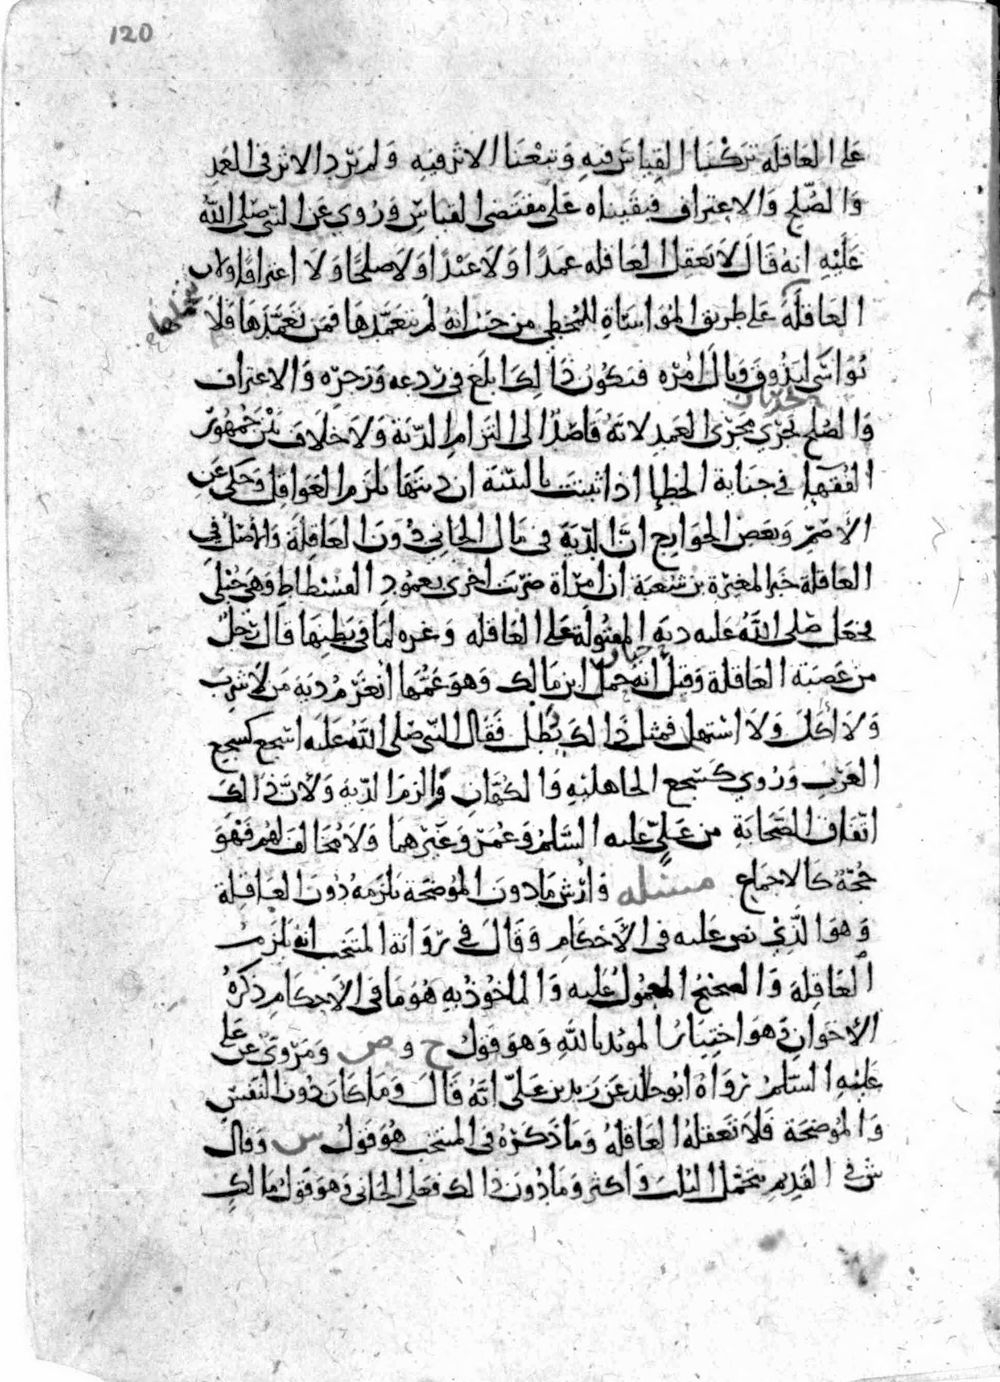 120
على العاقلة تركنا القياس فيه وتبعنا الاثر فيه ولم يرد الاثر في العمد
والصلح والاعتراف فبقيناه على مقتضى القياس وروي عن النبي صلى الله
عليه انه قال لا تعقل العاقله عمدًا ولا عبدًا ولا صلحًا ولا اعترافًا ولان
العاقلة على طريق المواساة للمخطي من حيث انه لم يتعمدها فمن تعمدها فلا
يواسى ليذوق وبال امره فيكون ذلك ابلغ في ردعه وزجره والاعتراف
والصلح يجري مجرى العمد لانه قاصد الى التزام الدية ولا خلاف بين جمهور
الفقهاء في جناية الخطإ اذا ثبتت بالبينة ان ديتها يلزم العواقل وحكي عن
الأصم وبعض الخوارج ان الدية في مال الجاني دون العاقلة والأصل في
العاقلة خبر المغيرة بن شعبة ان امرأة ضربت اخرى بعمود الفسطاط وهي حبلى
فجعل صلى الله عليه دية المقتولة على العاقله وغره لما في بطنها قال رجل
من عصبة العاقلة وقيل انه حمل ابن مالك وهو عمها انغرم دية من لا شرب
ولا أكل ولا استهل فمثل ذالك يُطل فقال النبي صلى الله عليه اسجع كسجع
العرب وروي كسجع الجاهليه والكهان والزم الدية ولأن في ذالك
اتفاق الصحابة من علي عليه السلم وعمر وغيرهما ولا مخالف لهم فهو
حجة كالاجماع مسئله وارش ما دون الموضحة يلزمه دون العاقلة
وهو الذي نص عليه في الأحكام وقال في رواية المنتخب انه يلزم
العاقلة والصحيح المعمول عليه والماخوذ به هو ما في الأحكام ذكره
الاخوان وهو اختيار المؤيد بالله وهو قول ح و ص ومروي عن علي
عليه السلم رواه ابو خالد عن زيد بن علي انه قال وما كان دون النفس
والموضحة فلا تعقله العاقلة وما ذكره في المنتخب هو قول س وقال
ش في القديم يتحمل الثلث واكثر وما دون ذالك فعلى الجاني وهو قول مالك